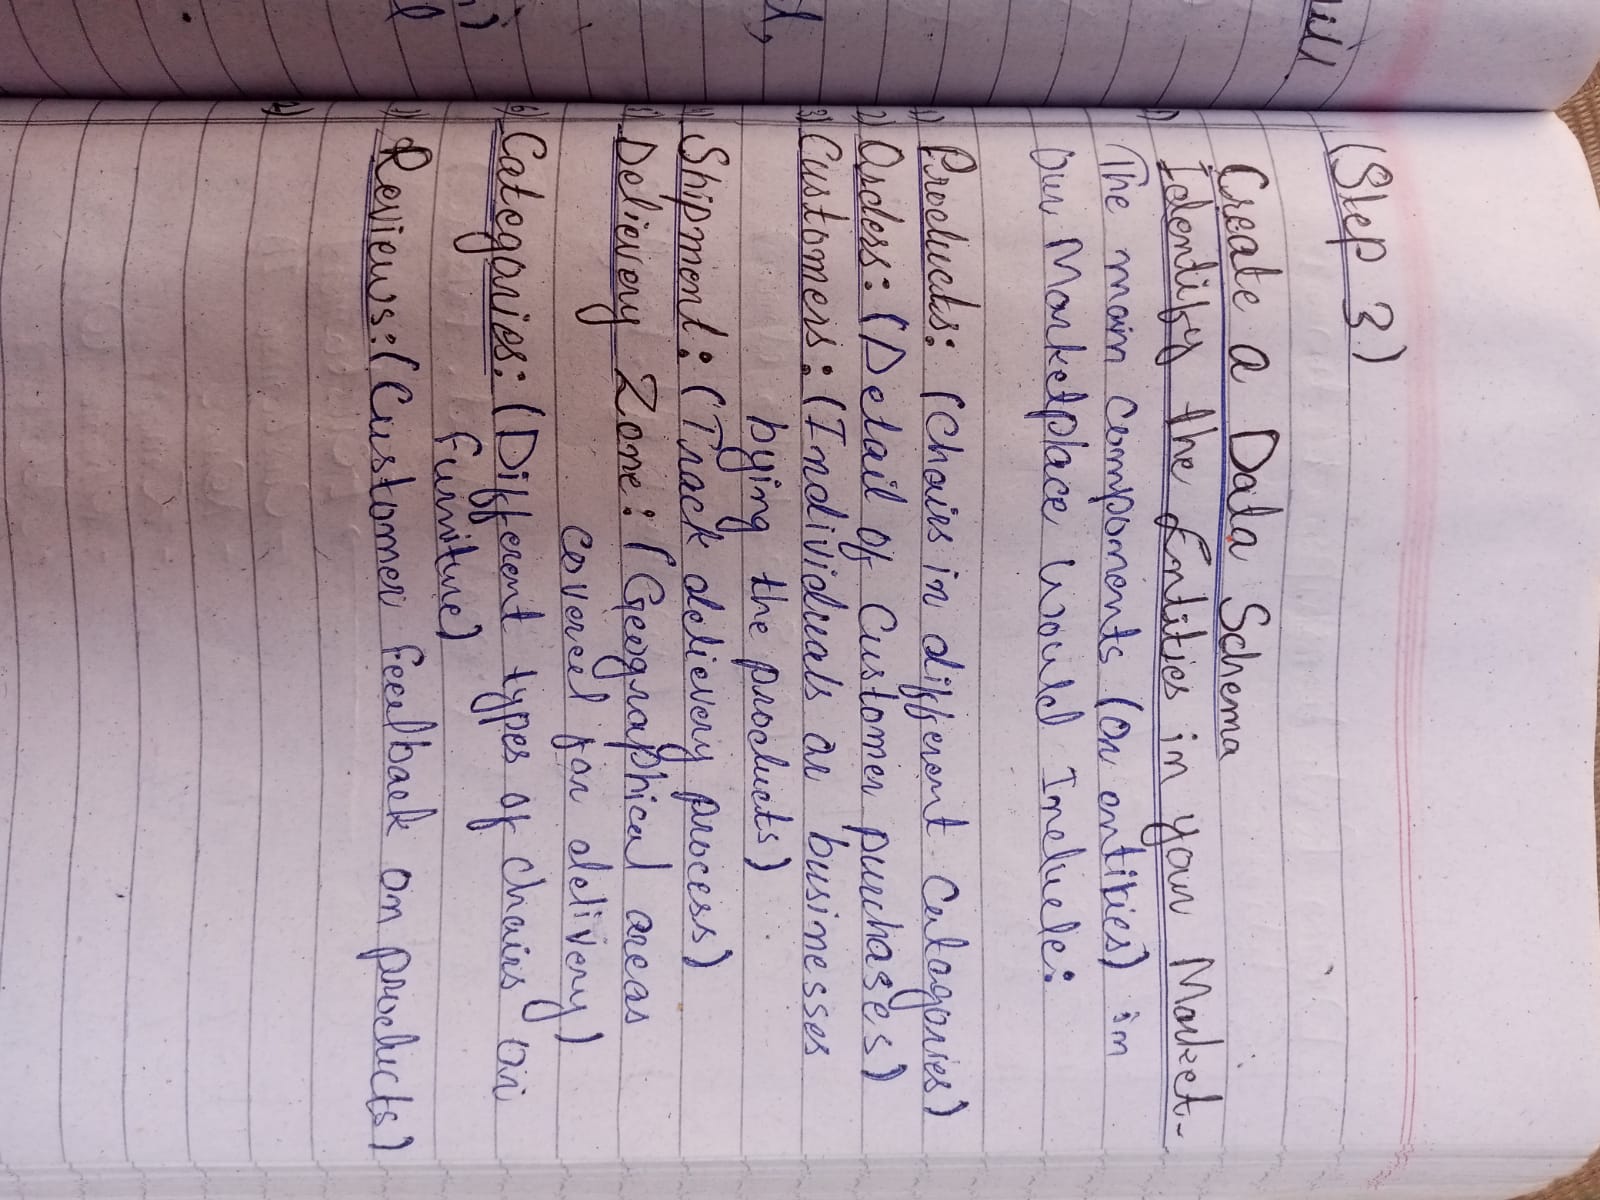 (Step 3)
Create a Data Schema
1) Identify the Entities in your Market-
The main Components (or entities) in
Our Marketplace Would Include:
1) Products: (Chairs in different Catagories)
2) Orders: (Detail of Customer purchases)
3) Customers: (Individuals or businesses
bying the products)
4) Shipment: (Track delievery process)
5) Delievery Zone: (Geographical areas
covered for delivery)
6) Categories: (Different types of Chairs or
furniture)
7) Reviews: (Customer feedback on products)
2)